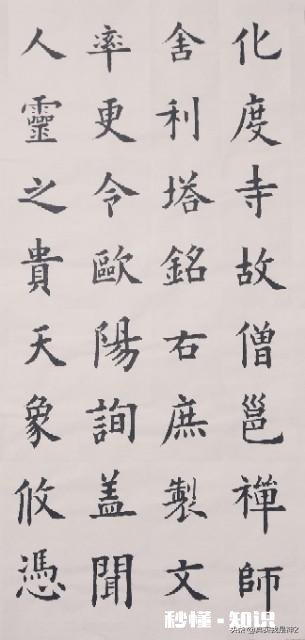 化度寺故僧邕禪師
舍利塔銘右庶製文
率更令歐陽詢蓋聞
人靈之貴天象攸憑
秒懂·知识